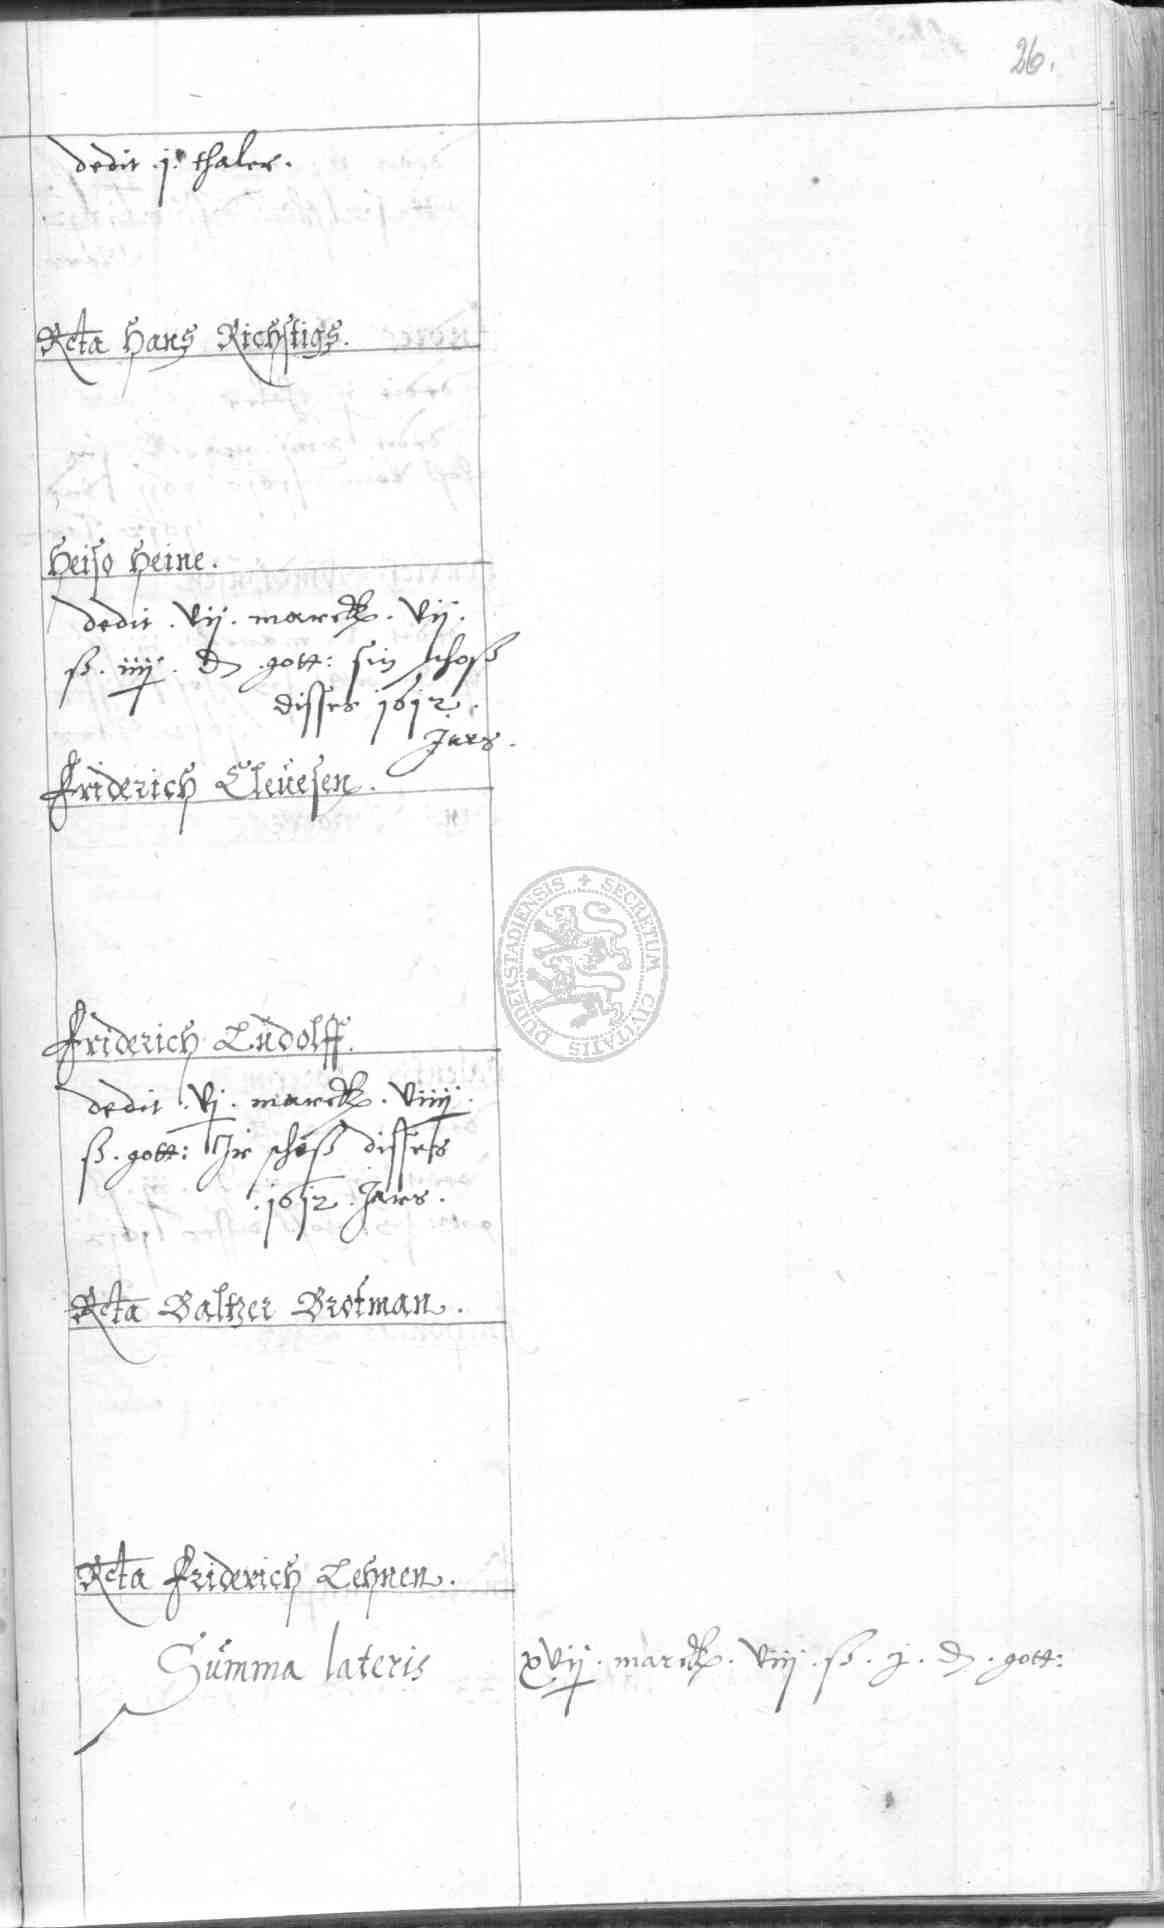 26.
dedit .j. thaler.
Rcta Hans Richstigs.
Heiso Heine.
dedit . vij . marck . vij .
ß . iiij . d gott: sin schoß
disses 1612 .
Jars .
Friderich Cleuesen .
Friderich Lüdolff .
dedit . vj . marck . viiij .
ß . gott: Jr schoß disses
. 1612 . Jars .
Rcta Baltzer Brotman .
Rcta Friderich Lehnen .
Summa lateris xvij . marck . viij . ß . j . d . gott:
SECRETUM CIVITATIS DUDERSTADIENSIS